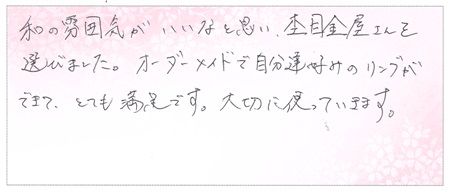 和の雰囲気がいいなと思い、杢目金屋さんを
選びました。オーダーメイドで自分達好みのリングが
できて、とても満足です。大切に使っていきます。